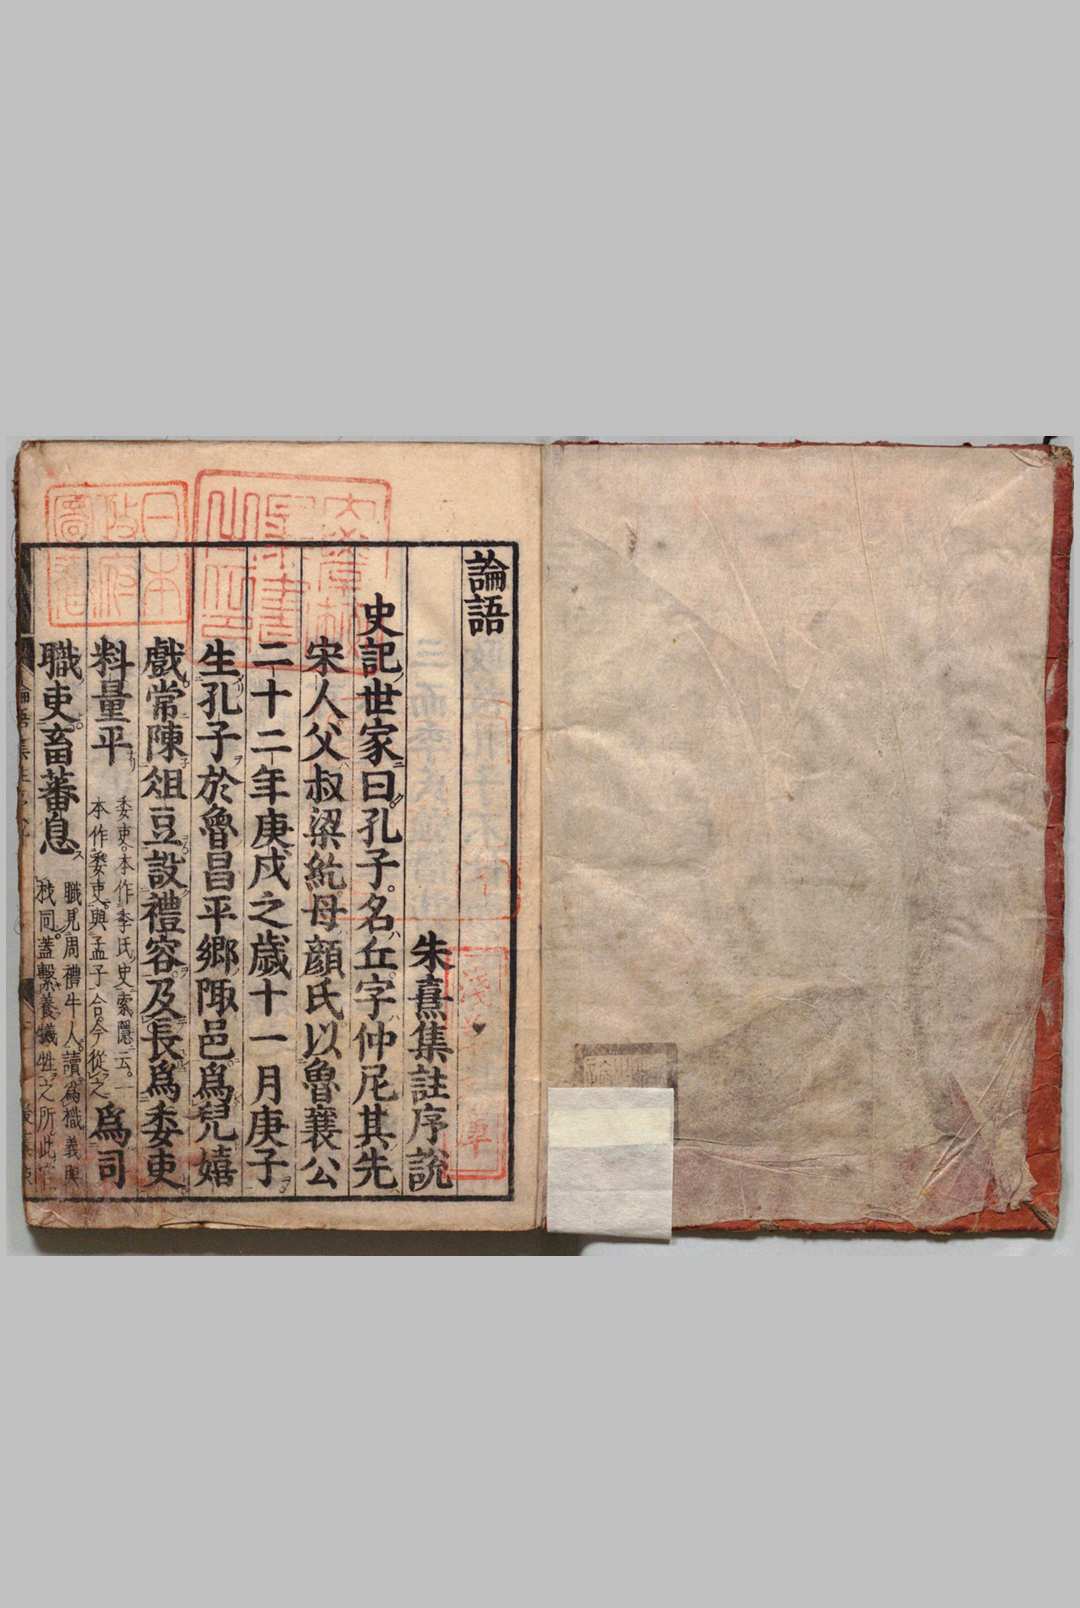 論語
朱熹集註序說
史記世家曰孔子名丘字仲尼其先
宋人父叔梁紇母顏氏以魯襄公
二十二年庚戌之歲十一月庚子
生孔子於魯昌平鄉陬邑爲兒嬉
戲常陳俎豆設禮容及長爲委吏
料量平
委吏本作季氏史索隱云一
本作委吏與孟子合今從之
爲司
職吏畜蕃息
職見周禮牛人讀爲樴義與
杙同蓋繫養犧牲之所此官
日本
政府
圖書